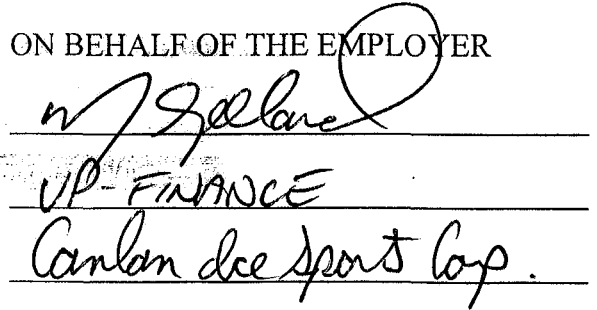 ON BEHALF OF THE EMPLOYER
VP-FINANCE
Canlan Ice Sport Corp.